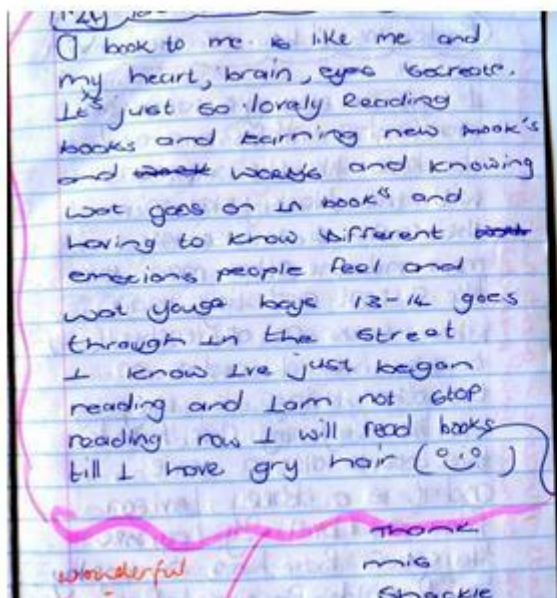 A book to me is like me and
my heart, brain, eyes secreate.
It's just so lovely Reading
books and earning new book's
and words and knowing
wat goes on in book's and
having to know different
emocions people feel and
wat youge boys 13-14 goes
through in the street
I know Ive just began
reading and Iam not stop
reading now I will read books
till I have gry hair (☺)
Thank
wonderful mis
Shackle